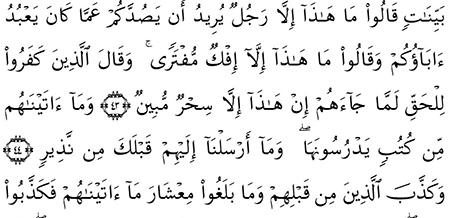 بَيِّنَٰتٍ قَالُوا۟ مَا هَٰذَآ إِلَّا رَجُلٌ يُرِيدُ أَن يَصُدَّكُمْ عَمَّا كَانَ يَعْبُدُ
ءَابَآؤُكُمْ وَقَالُوا۟ مَا هَٰذَآ إِلَّآ إِفْكٌ مُّفْتَرًى ۚ وَقَالَ ٱلَّذِينَ كَفَرُوا۟
لِلْحَقِّ لَمَّا جَآءَهُمْ إِنْ هَٰذَآ إِلَّا سِحْرٌ مُّبِينٌ ﴿٤٣﴾ وَمَآ ءَاتَيْنَٰهُم
مِّن كُتُبٍ يَدْرُسُونَهَا ۖ وَمَآ أَرْسَلْنَآ إِلَيْهِمْ قَبْلَكَ مِن نَّذِيرٍ ﴿٤٤﴾
وَكَذَّبَ ٱلَّذِينَ مِن قَبْلِهِمْ وَمَا بَلَغُوا۟ مِعْشَارَ مَآ ءَاتَيْنَٰهُمْ فَكَذَّبُوا۟